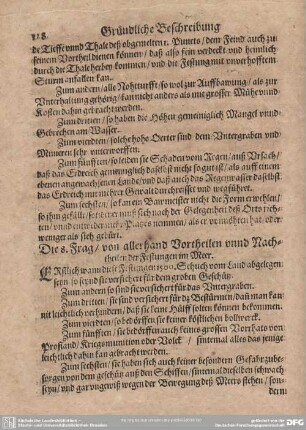 118. Gründliche Beschreibung
de Tieffe vnnd Thale deß obgemelten 1. Puncts / dem Feind auch zu
seinem Vortheil dienen können / daß also fern verdeckt vnd heimlich
durch die Thale herbey kommen / vnd die Festung mit vnverhofftem
Sturm anfallen kan.
Zum andern / alle Nohtturfft / so wol zur Auffbawung / als zur
Vnterhaltung gehörig / kan nicht anders als mit grosser Mühe vnnd
Kosten dahin gebracht werden.
Zum dritten / so haben die Höhen gemeiniglich Mangel vnnd
Gebrechen am Wasser.
Zum vierdten / solche hohe Oerter sind dem Vntergraben vnd
Miniren sehr vnterworffen.
Zum fünfften / so leiden sie Schaden vom Regen / auß Vrsach /
daß das Erdreich gemeiniglich daselbst nicht so gut ist / als auff einem
ebenen angewachsenen Lande / vnd daß auch das Regenwasser daselbst
das Erdreich mit
Zum sechsten / so kan ein Bawmeister nicht die Form erwehlen /
so ihm gefällt / sondern muß sich nach der Gelegenheit deß Orts richten /
weniger als sich gebürt.
Die 2. Frag / von allerhand Vortheilen vnnd Nachtheilen
der Festungen im Meer.
Erstlich wann diese Festungen von Schuch vom Land abgelegen
seyn / so seynd sie versichert für dem groben Geschütz.
Zum andern so sind sie versichert für das Vntergraben.
Zum dritten / sie sind versichert für dz Bestürmen / daß man kan
mit leichtlich verhindern / daß sie keine Hülff solten können bekommen.
Zum vierdten / so bedörffen sie keiner köstlichen bollwerck.
Zum fünfften / sie bedörffen auch keines grossen Vorrhats von
Profiand / Kriegsmunition oder Volck / sintemal alles das jenige
leichtlich dahin kan gebracht werden.
Zum sechsten / sie haben sich auch keiner besondern Gefahr zubesorgen
von dem geschütz auß den Schiffen / sintemal dieselben schwach
seyn / vnd gar vngewiß wegen der Bewegung deß Meers stehen / son-
dern